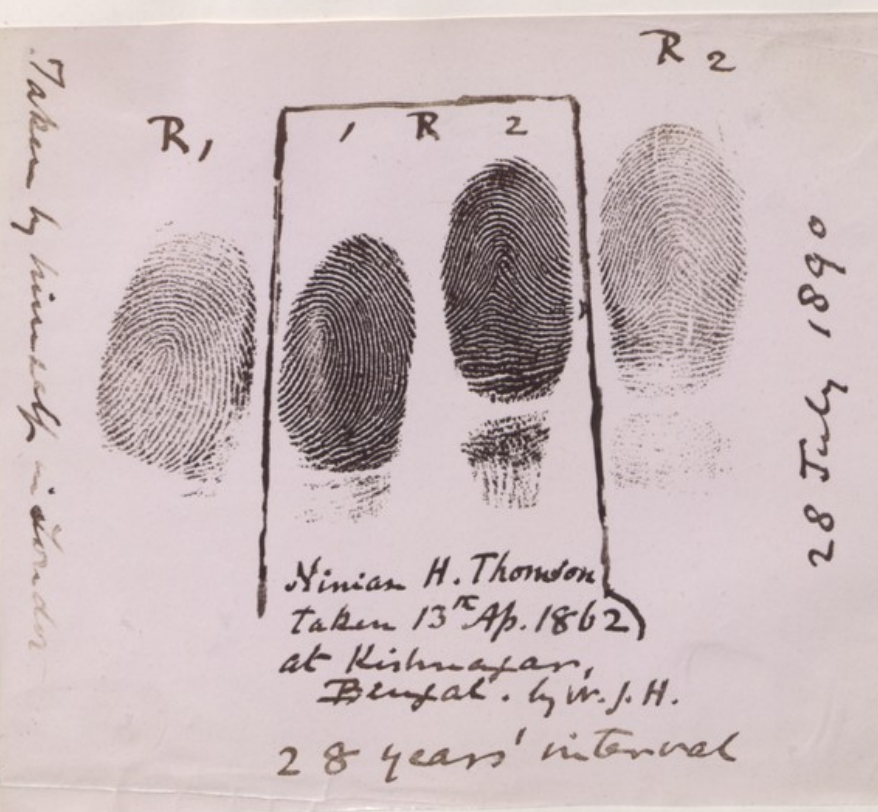 R 2
R 1
1 R 2
Taken by himself in London
28 July 1890
Ninian H. Thomson
taken 13th Ap. 1862
at Kishnagar,
Bengal. by W. J. H.
28 years' interval